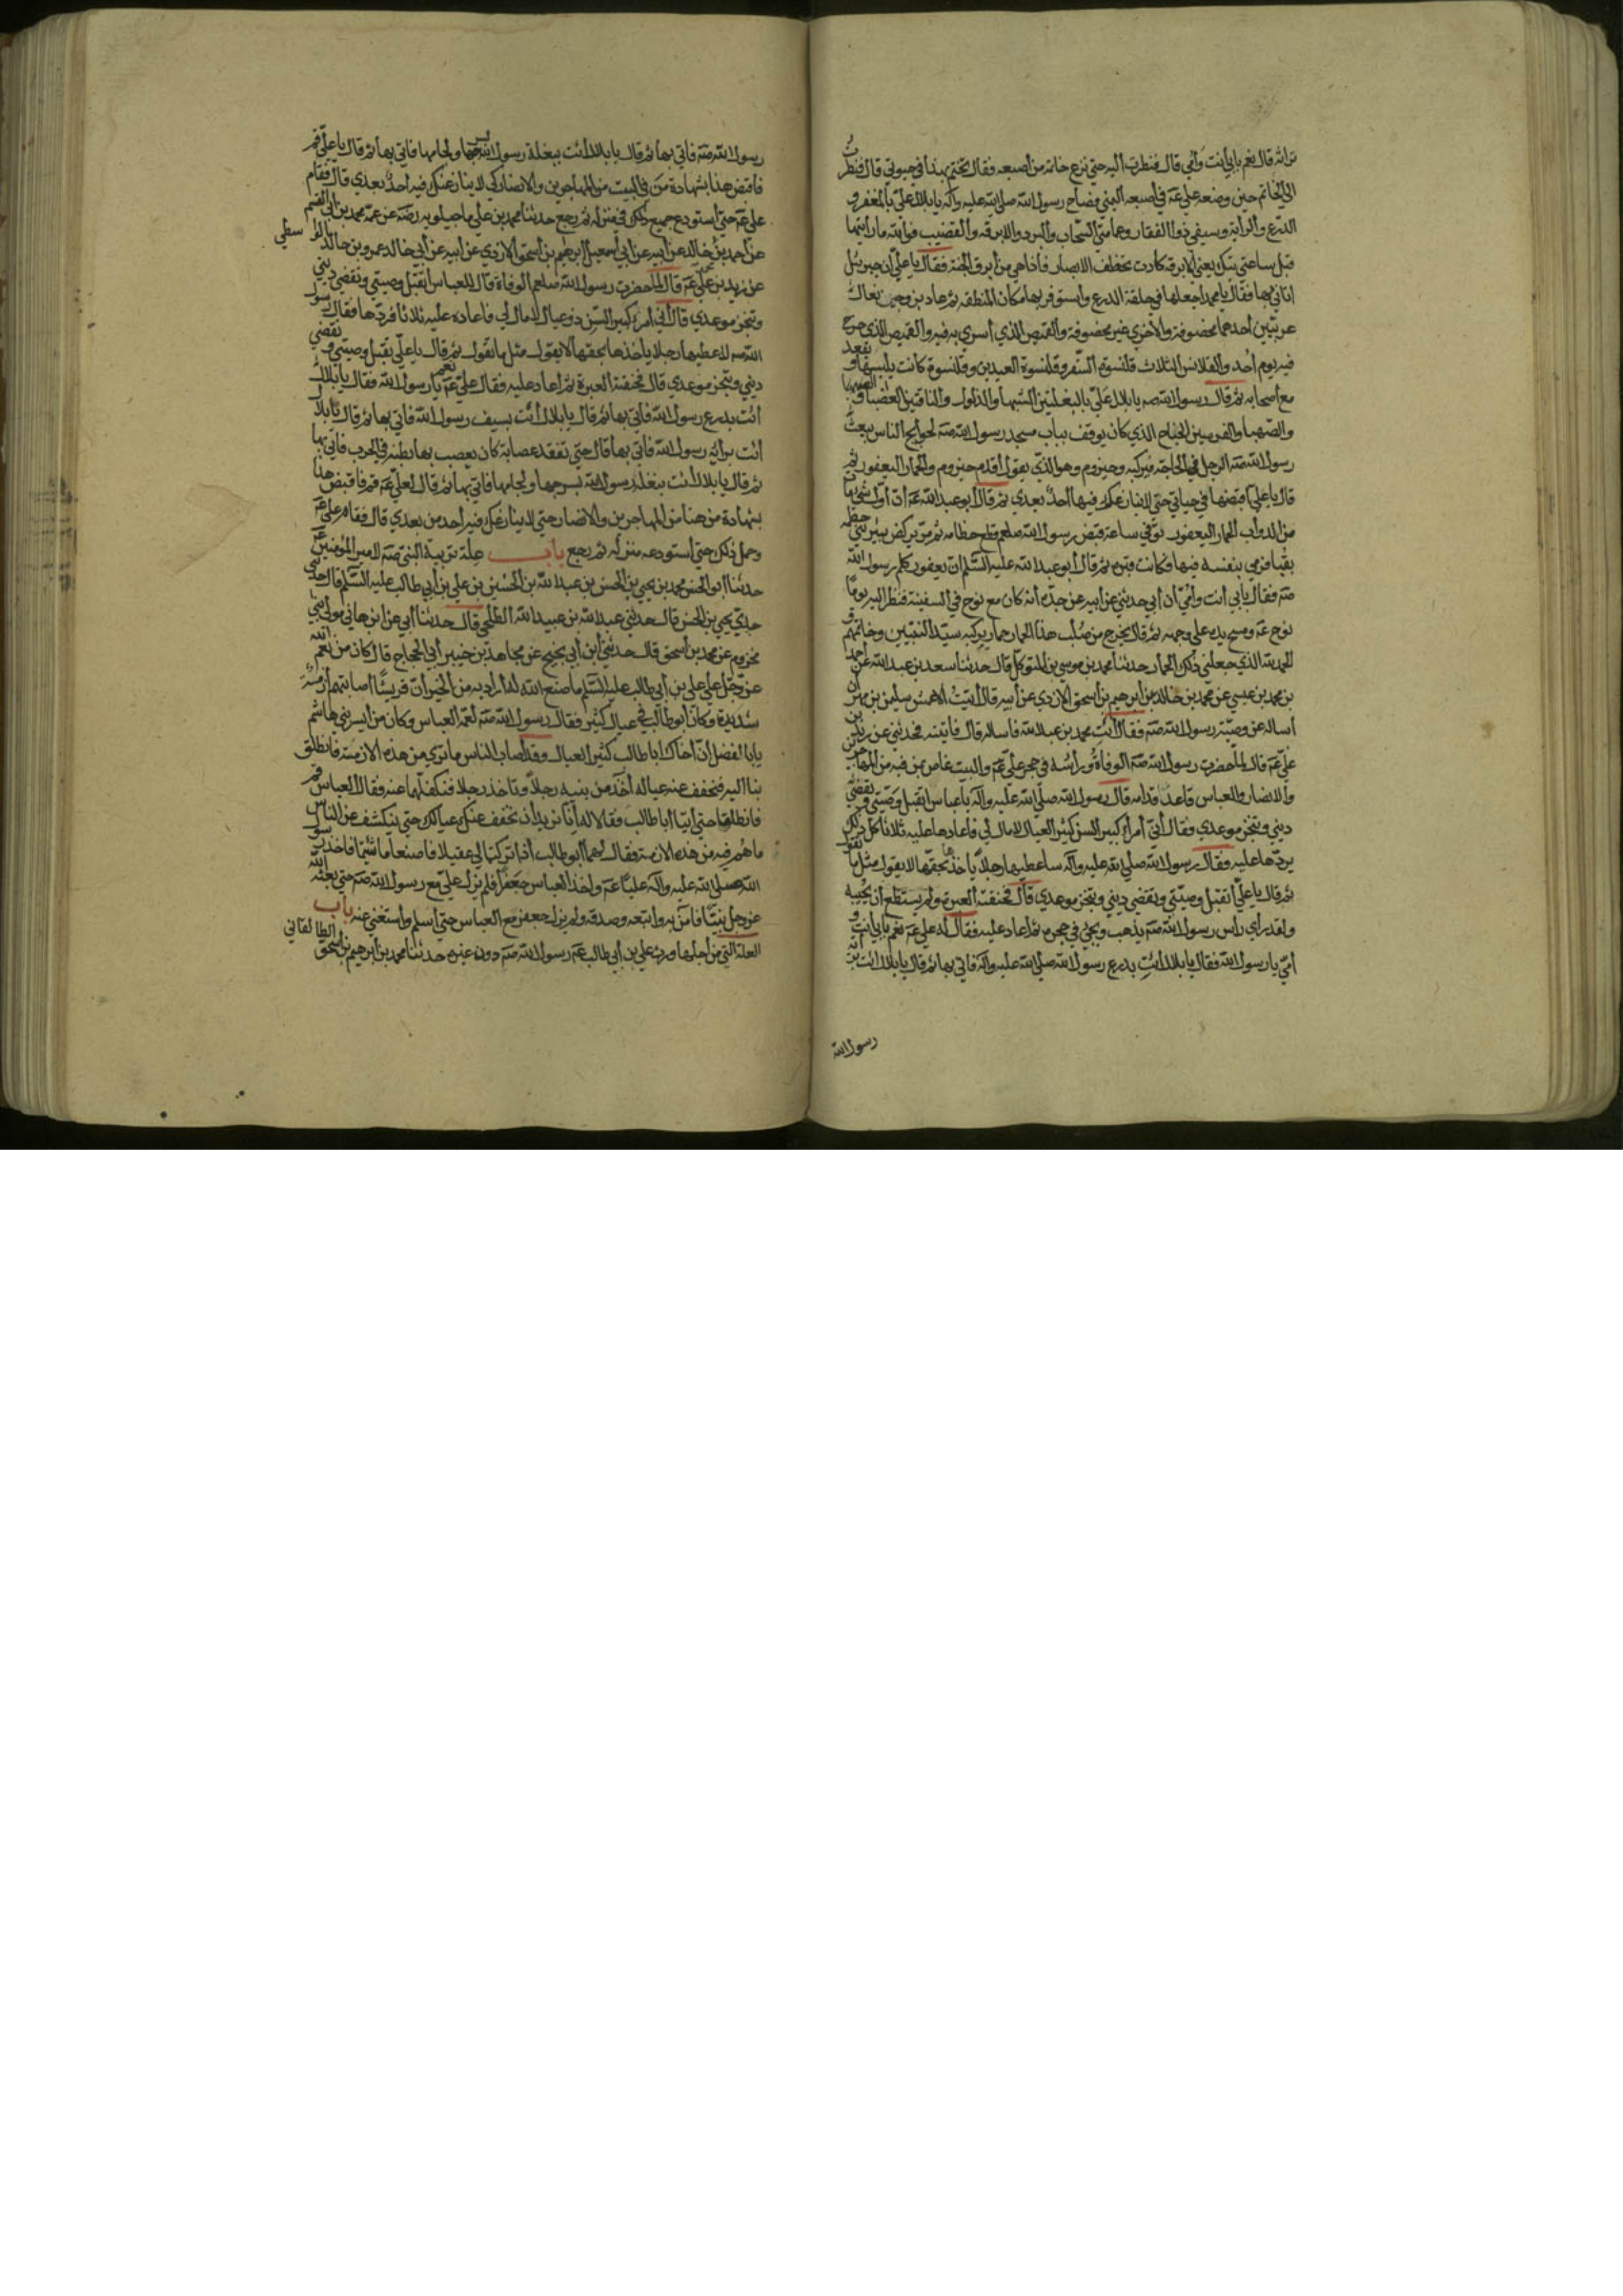 ترانه قال نعم بابي انت وامي قال فنظرت اليه حتي نزع خاتمه من اصبعه فقال تختم بهذا في حيوتي قال فنظرت
الي الخاتم حين وضعه علي عم في اصبعه اليمني فصاح رسول الله صلي الله عليه وآله يا بلال علي بالمغفر و
الدرع والراية وسيفي ذو الفقار وعمامتي السحاب والبرد والابرقه والقضيب فوالله ما رايتها
قبل ساعتي تيك يعني الابرقه كادت تخطف الابصار فاذا هي من ابرق الجنة فقال يا علي ان جبرئيل
اتاني بها فقال يا محمد اجعلها في حلقة الدرع واستوفر بها مكان المنطقه ثم دعا بزوجين نعال
عربيين احدهما مخصوفة والاخري غير مخصوفة والقميص الذي اسري به فيه والقميص الذي خرج
فيه يوم احد والقلانس الثلاث قلنسوة السفر وقلنسوة العيدين وقلنسوة كانت يلبسها ويقعد
مع اصحابه ثم قال رسول الله صه يا بلال علي بالبغلتين الشهبا والدلدل والناقتين العضبا و
والصهبا والفرسين الجناح الذي كان يوقف بباب مسجد رسول الله صه لحوايج الناس يبعث
رسول الله صه الرجل في الحاجة فيركبه وحيزوم وهو الذي يقول اقدم حيزوم والحمار اليعفور ثم
قال يا علي اقبضها في حياتي حتي لا ينازعك فيها احد بعدي ثم قال ابو عبد الله عم ان اول شي مات
من الدواب الحمار اليعفور توفي ساعة قبض رسول الله صلعم قطع خطامه ثم مر يركض بير بني خطمه
بقبا فرمي بنفسه فيها فكانت قبره ثم قال ابو عبد الله عليه السلم ان يعفور كلم رسول الله
صه فقال بابي انت وامي ان ابي حدثني عن ابيه عن جده انه كان مع نوح في السفينة فنظر اليه يوما
نوح عم ومسح يده علي وجهه ثم قال يخرج من صلب هذا الحمار حمار يركبه سيد النبيين وخاتمهم
الحمد لله الذي جعلني ذلك الحمار حدثنا محمد بن موسي بن المتوكل قال حدثنا سعد بن عبد الله عن احمد
بن محمد بن عيسي عن محمد بن خالد عن ابرهيم بن اسحق الازدي عن ابيه قال اتيت الاعمش سليمن بن مهران
اساله عن وصية رسول الله صه فقال ائت محمد بن عبد الله فاساله قال فاتيته فحدثني عن زيد بن
علي عم قال لما حضرت رسول الله صه الوفاة وراسه في حجر علي عم والبيت غاص بمن فيه من المهاجرين
والانصار والعباس قاعد قدامه قال رسول الله صلي الله عليه وآله يا عباس اتقبل وصيتي وتقضي
ديني وتنجز موعدي فقال اني امرء كبير السن كثير العيال لا مال لي فاعادها عليه ثلاثا كل ذلك
يردها عليه فقال رسول الله صلي الله عليه وآله ساعطيها رجلا ياخذها بحقها لا يقول مثل ما تقول
ثم قال يا علي اتقبل وصيتي وتقضي ديني وتنجز موعدي قال فخنقته العبرة ولم يستطع ان يجيبه
ولقد راي راس رسول الله صه يذهب ويجيئ في حجره ثم اعاد عليه فقال له علي عم نعم بابي انت و
امي يا رسول الله فقال يا بلال ائت بدرع رسول الله صلي الله عليه وآله فاتي بها ثم قال يا بلال ائت براية
رسول الله
رسول الله صه فاتي بها ثم قال يا بلال ائت ببغلة رسول الله بسرجها ولجامها فاتي بها ثم قال يا علي قم
فاقبض هذا بشهادة من في البيت من المهاجرين والانصار كي لا ينازعك فيه احد بعدي قال فقام
علي عم حتي استودع جميع ذلك في منزله ثم رجع حدثنا محمد بن علي ماجيلويه رضه عن عمه محمد بن ابي القسم
عن احمد بن خالد عن ابيه عن ابي اسمعيل ابرهيم بن اسحق الازدي عن ابيه عن ابي خالد عمرو بن خالد الواسطي
عن زيد بن علي عم قال لما حضرت رسول الله صلعم الوفاة قال للعباس اتقبل وصيتي وتقضي ديني
وتنجز موعدي قال اني امرء كبير السن ذو عيال لا مال لي فاعاده عليه ثلاثا فردها فقال رسول
الله صه لاعطيها رجلا ياخذها بحقها لا يقول مثل ما تقول ثم قال يا علي تقبل وصيتي وتقضي
ديني وتنجز موعدي قال فخنقته العبرة ثم اعاد عليه فقال علي عم نعم يا رسول الله فقال يا بلال
ائت بدرع رسول الله فاتي بها ثم قال يا بلال ائت بسيف رسول الله فاتي بها ثم قال يا بلال
ائت براية رسول الله فاتي بها قال حتي تفقد عصابة كان يعصب بها بطنه في الحرب فاتي بها
ثم قال يا بلال ائت ببغلة رسول الله بسرجها ولجامها فاتي بها ثم قال لعلي عم قم فاقبض هذا
بشهادة من هنا من المهاجرين والانصار حتي لا ينازعك فيه احد من بعدي قال فقام علي عم
وحمل ذلك حتي استودعه منزله ثم رجع باب علة تربية النبي صه لامير المؤمنين عم
حدثنا ابو الحسن محمد بن يحيي بن الحسن بن عبد الله بن الحسين بن علي بن ابي طالب عليه السلم قال حدثني
جدي يحيي بن الحسن قال حدثني عبد الله بن عبيد الله الطلحي قال حدثنا ابي عن ابن هاني مولي بني
مخزوم عن محمد بن اسحق قال حدثني ابن ابي نجيح عن مجاهد بن جبير ابي الحجاج قال كان من نعم الله
عز وجل علي علي بن ابي طالب عليه السلم ما صنع الله له اراد به من الخير ان قريشا اصابتهم ازمة
شديدة وكان ابو طالب في عيال كثير فقال رسول الله صه لعمه العباس وكان من ايسر بني هاشم
يا با الفضل ان اخاك ابا طالب كثير العيال وقد اصاب الناس ما تري من هذه الازمة فانطلق
بنا اليه فنخفف عنه عياله آخذ من بنيه رجلا وتاخذ رجلا فنكفلهما عنه فقال العباس قم
فانطلقا حتي اتيا ابا طالب فقالا له انا نريد ان نخفف عنك عيالك حتي ينكشف عن الناس
ما هم فيه من هذه الازمة فقال لهما ابو طالب اذا تركتما لي عقيلا فاصنعا ما شئتما فاخذ رسول
الله صلي الله عليه وآله عليا عم واخذ العباس جعفرا فلم يزل علي مع رسول الله صه حتي بعثه الله
عز وجل نبيا فامن به واتبعه وصدقه ولم يزل جعفر مع العباس حتي اسلم واستغني عنه باب
العلة التي من اجلها ورث علي بن ابي طالب عم رسول الله صه دون غيره حدثنا محمد بن ابرهيم بن اسحق الطالقاني